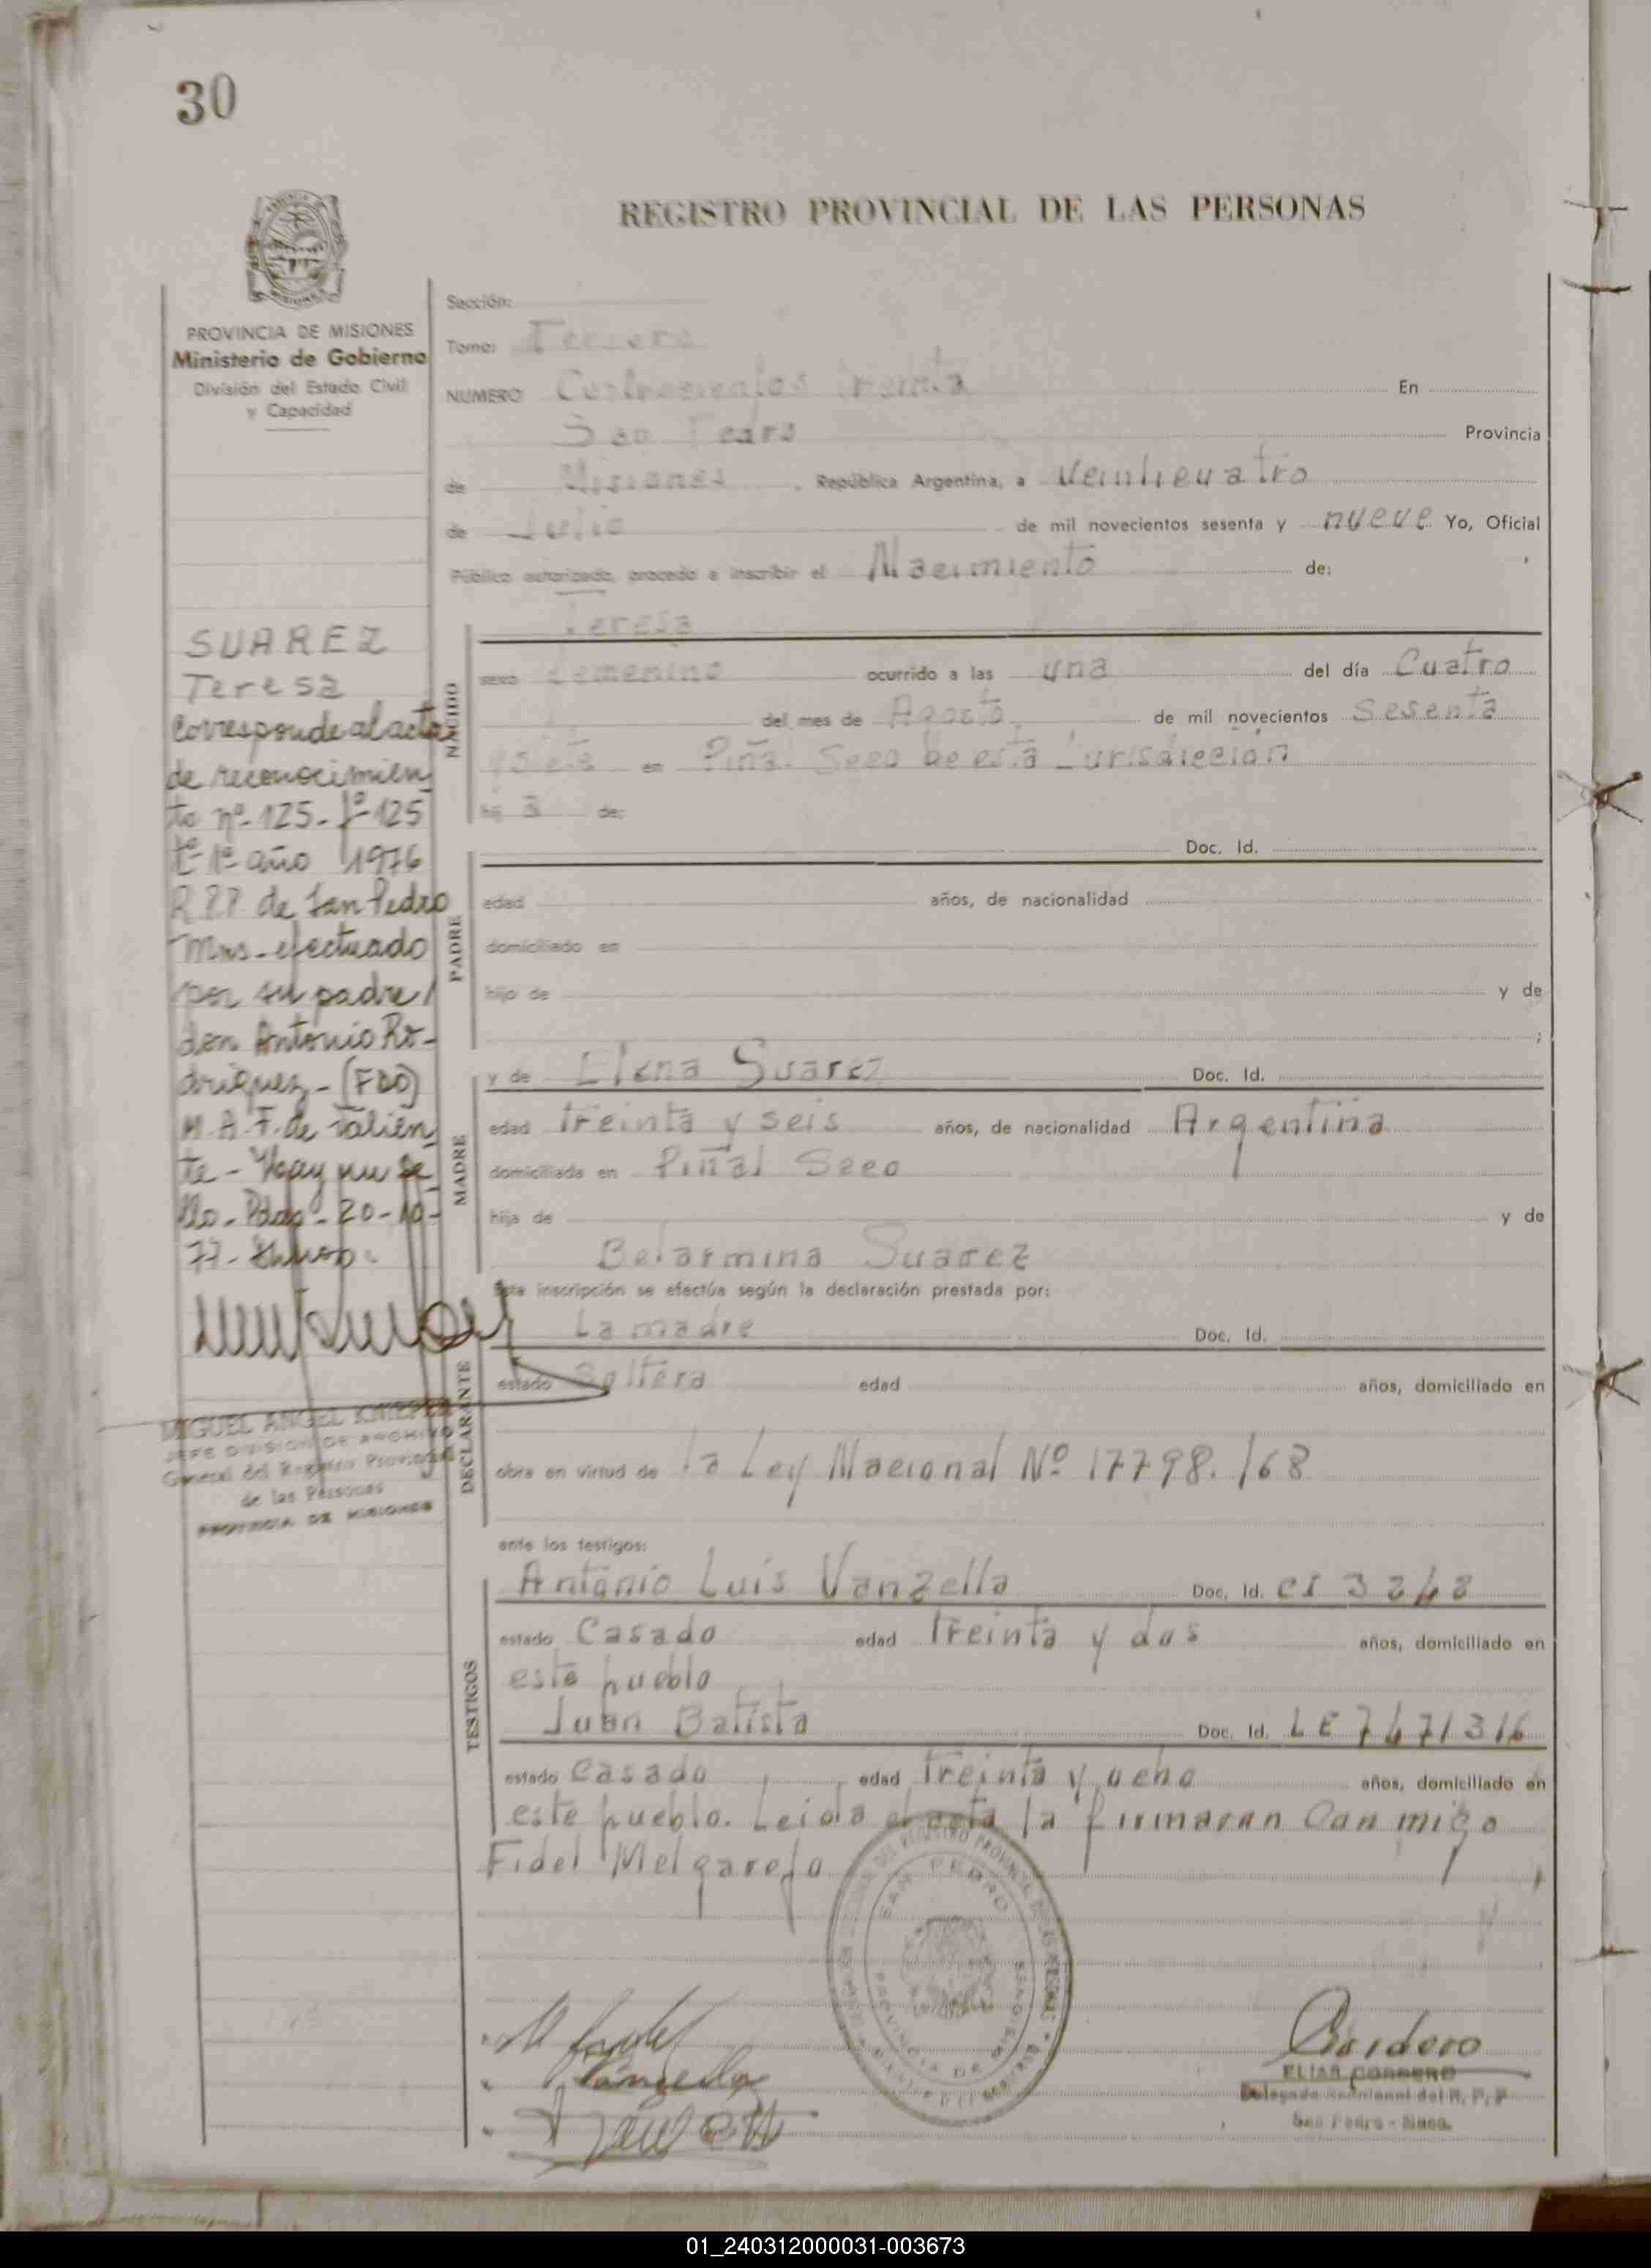 30
REGISTRO PROVINCIAL DE LAS PERSONAS
PROVINCIA DE MISIONES
Ministerio de Gobierno
División del Estado Civil
y Capacidad
SUAREZ
Teresa
Corresponde al acta
de reconocimien
to nº 125 - fº 125
tº 1º año 1976
R.P.P. de San Pedro
Mns - efectuado
por su padre
don Antonio Ro-
driguez - (FDO)
M. A. F. de Talien
te - Hay un se
llo - Pdas - 20-10-
77 -
MIGUEL ANGEL
JEFE DIVISION DE ARCHIVO
General del Registro Provincial
de las Personas
PROVINCIA DE MISIONES
Sección:
Tomo: Tercero
NUMERO Cuatrocientos treinta En
San Pedro Provincia
de Misiones, República Argentina, a Veinticuatro
de Julio de mil novecientos sesenta y nueve Yo, Oficial
Público autorizado, procedo a inscribir el Nacimiento de:
Teresa
NACIDO
sexo femenino ocurrido a las una del día Cuatro
del mes de Agosto de mil novecientos Sesenta
y siete en Piñal Seco de esta Jurisdicción
hij a de:
PADRE
Doc. Id.
edad años, de nacionalidad
domiciliado en
hijo de y de
;
MADRE
y de Elena Suarez Doc. Id.
edad treinta y seis años, de nacionalidad Argentina
domiciliada en Piñal Seco
hija de y de
Belarmina Suarez
Esta inscripción se efectúa según la declaración prestada por:
DECLARANTE
La madre Doc. Id.
estado Soltera edad años, domiciliado en
obra en virtud de la Ley Nacional Nº 17798./68
ante los testigos:
TESTIGOS
Antonio Luis Vanzella Doc. Id. CI
estado Casado edad Treinta y dos años, domiciliado en
este pueblo
Juan Batista Doc. Id. LE 7471316
estado Casado edad Treinta y ocho años, domiciliado en
este pueblo. Leida el acta la firmaran Con migo
Fidel Melgarejo
SAN PEDRO
PROVINCIA DE MISIONES
ELIAS CORDERO
Delegado Seccional del R. P. P
San Pedro - Mnes.
01_240312000031-003673